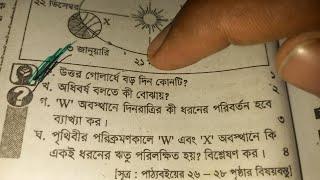 ২২ ডিসেম্বর
X
৩ জানুয়ারি
২১
উত্তর গোলার্ধে বড় দিন কোনটি? ১
খ. অধিবর্ষ বলতে কী বোঝায়? ২
গ. 'W' অবস্থানে দিনরাত্রির কী ধরনের পরিবর্তন হবে
ব্যাখ্যা কর। ৩
ঘ. পৃথিবীর পরিক্রমণকালে 'W' এবং 'X' অবস্থানে কি
একই ধরনের ঋতু পরিলক্ষিত হয়? বিশ্লেষণ কর। ৪
[সূত্র : পাঠ্যবইয়ের ২৬ – ২৮ পৃষ্ঠার বিষয়বস্তু]